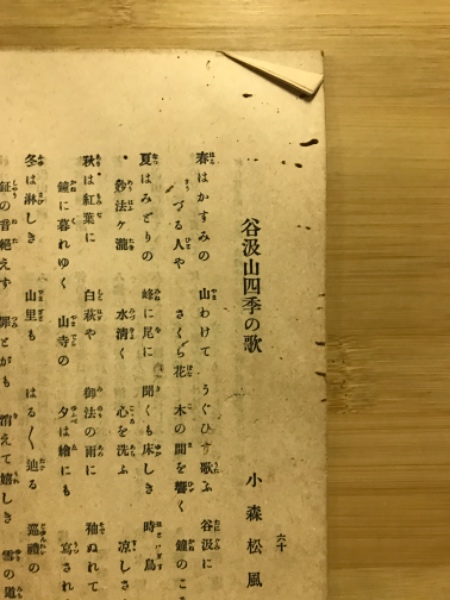 谷汲山四季の歌
小森松風
六十
春はかすみの 山わけて うぐひす歌ふ 谷汲に
づる人や さくら花 木の間を響く 鐘のこ
夏はみどりの 峰に尾に 聞くも床しき 時鳥
妙法ヶ瀧 水清く 心を洗ふ 凉しさ
秋は紅葉に 白萩や 御法の雨に 袖ぬれて
鐘に暮れゆく 山寺の 夕は繪にも 寫され
冬は淋しき 山里も はる〲辿る 巡禮の
鉦の音絶えず 罪とがも 消えて嬉しき 雪の道